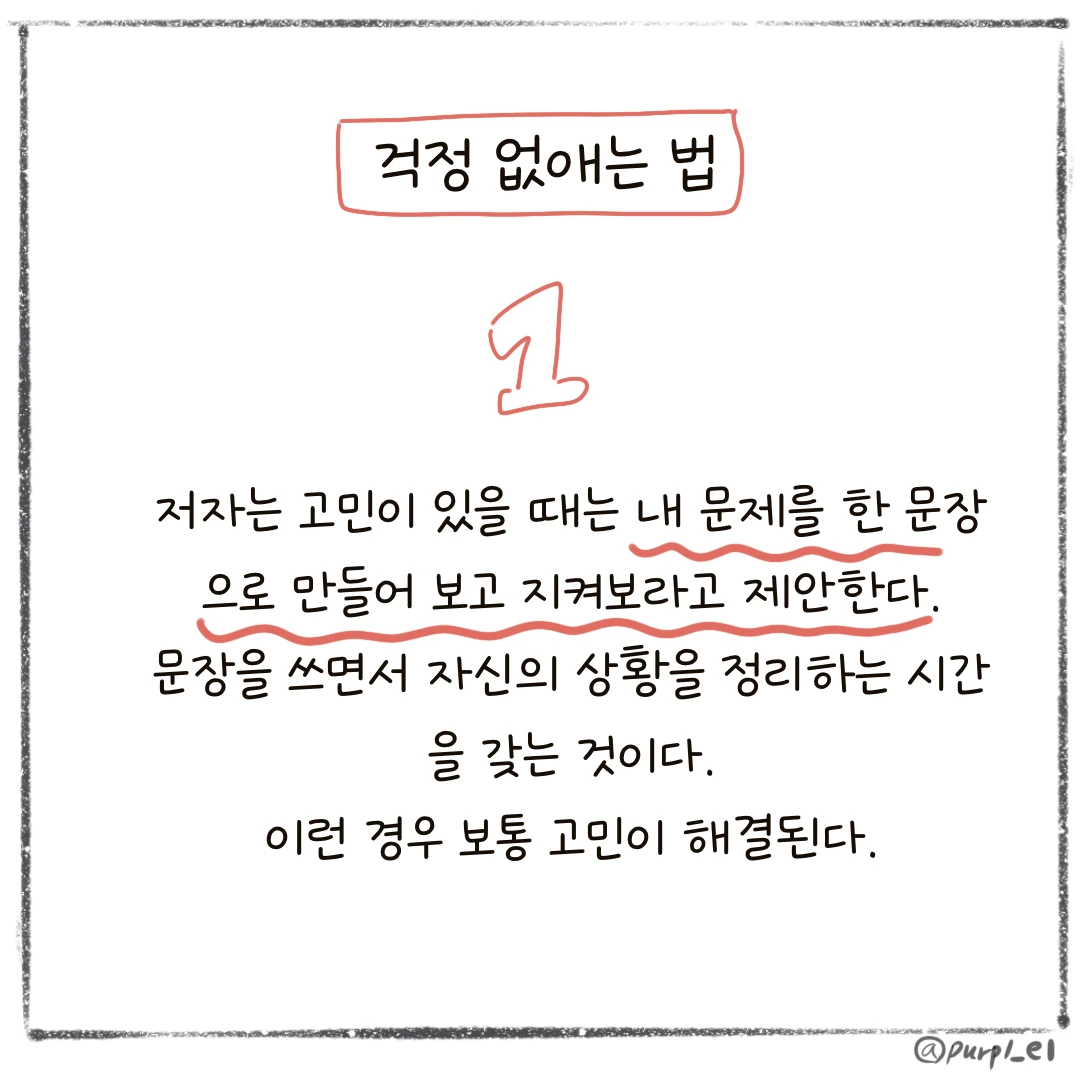 걱정 없애는 법
1
저자는 고민이 있을 때는 내 문제를 한 문장
으로 만들어 보고 지켜보라고 제안한다.
문장을 쓰면서 자신의 상황을 정리하는 시간
을 갖는 것이다.
이런 경우 보통 고민이 해결된다.
@purpl_el